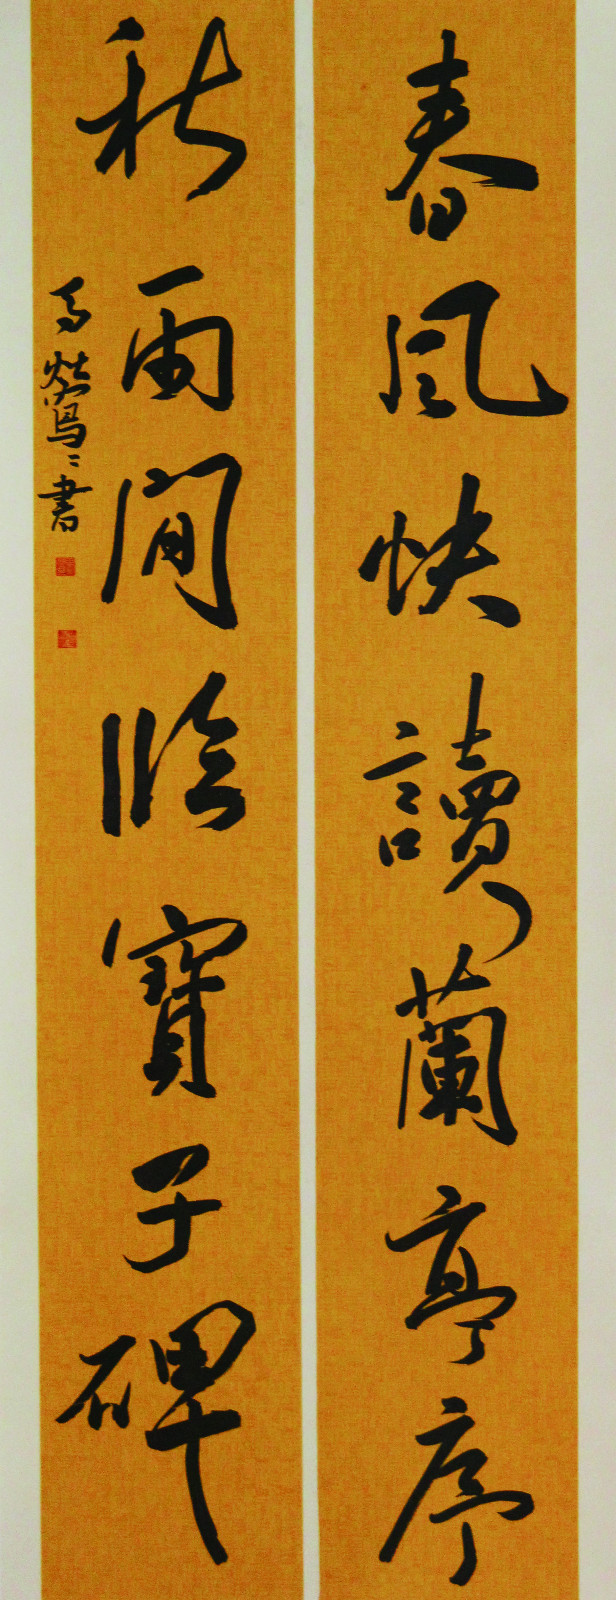 春風快讀蘭亭序
秋雨閒臨寶子碑
書